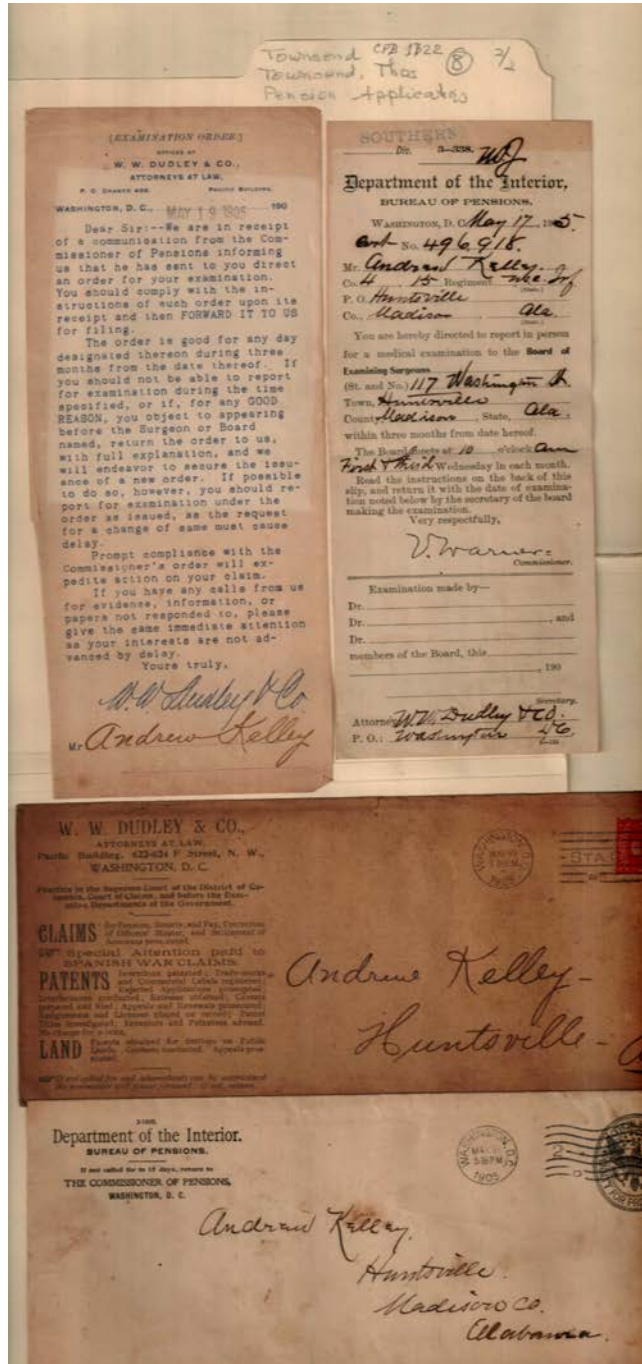 Townsend CFB 1B22 ⑧ 2/2
Townsend, Thos
Pension Applications
[EXAMINATION ORDER]
OFFICES OF
W. W. DUDLEY & CO.,
ATTORNEYS AT LAW,
P. O. DRAWER PACIFIC BUILDING.
WASHINGTON, D. C., MAY 19 1905 190
Dear Sir:--We are in receipt
of a communication from the Com-
missioner of Pensions informing
us that he has sent to you direct
an order for your examination.
You should comply with the in-
structions of such order upon its
receipt and then FORWARD IT TO US
for filing.
The order is good for any day
designated thereon during three
months from the date thereof. If
you should not be able to report
for examination during the time
specified, or if, for any GOOD
REASON, you object to appearing
before the Surgeon or Board
named, return the order to us,
with full explanation, and we
will endeavor to secure the issu-
ance of a new order. If possible
to do so, however, you should re-
port for examination under the
order as issued, as the request
for a change of same must cause
delay.
Prompt compliance with the
Commissioner's order will ex-
pedite action on your claim.
If you have any calls from us
for evidence, information, or
papers not responded to, please
give the same immediate attention
as your interests are not ad-
vanced by delay.
Yours truly,
W. W. Dudley & Co
Mr Andrew Kelley
SOUTHERN
Div. 3-338.
Department of the Interior,
BUREAU OF PENSIONS,
WASHINGTON, D. C. May 17, 1905
No. 496,918.
Mr. Andrew Kelley
Co. 4 15 Regiment Inf
P. O. Huntsville
Co., Madison Ala
You are hereby directed to report in person
for a medical examination to the Board of
Examining Surgeons
(St. and No.) 117 Washington St.
Town, Huntsville
County Madison, State, Ala.
within three months from date hereof.
The Board meets at 10 o'clock am
First & third Wednesday in each month.
Read the instructions on the back of this
slip, and return it with the date of examina-
tion noted below by the secretary of the board
making the examination.
Very respectfully,
V. Warner
Commissioner.
Examination made by—
Dr.
Dr. , and
Dr.
members of the Board, this
, 190
Secretary.
Attorney W.W. Dudley & CO.
P. O.: Washington DC
W. W. DUDLEY & CO.,
ATTORNEYS AT LAW,
Pacific Building, 622-624 F Street, N. W.,
WASHINGTON, D. C.
Practice in the Supreme Court of the District of Co-
lumbia, Court of Claims, and before the Exec-
utive Departments of the Government.
CLAIMS
Special Attention paid to
SPANISH WAR CLAIMS.
PATENTS
LAND
WASHINGTON, D.C.
1905
STA.
Andrew Kelley-
Huntsville-
Department of the Interior.
BUREAU OF PENSIONS.
If not called for in 15 days, return to
THE COMMISSIONER OF PENSIONS,
WASHINGTON, D. C.
WASHINGTON, D.C.
1905
Andrew Kelley,
Huntsville.
Madison Co.
Alabama.